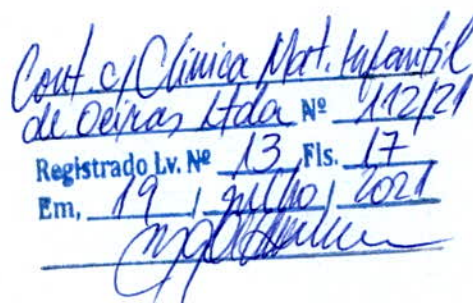 Cont. c/ Clínica Mat. Infantil
de Oeiras Ltda Nº 112/21
Registrado Lv. Nº 13 Fls. 17
Em, 19 / julho / 2021